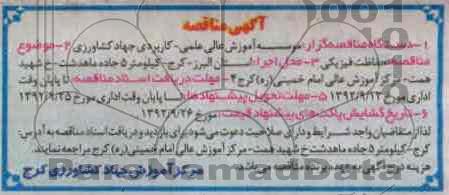 آگهی مناقصه
۱- دستگاه مناقصه گزار: موسسه آموزش عالی علمی- کاربردی جهاد کشاورزی ۲- موضوع
مناقصه: حفاظت فیزیکی ۳- محل اجرا: استان البرز- کرج- کیلومتر ۵ جاده ماهدشت- خ شهید
همت- مرکز آموزش عالی امام خمینی (ره) کرج ۴- مهلت دریافت اسناد مناقصه: تا پایان وقت
اداری مورخ ۱۳۹۲/۹/۱۳ ۵- مهلت تحویل پیشنهادها: تا پایان وقت اداری مورخ ۱۳۹۲/۹/۲۵
۶- تاریخ گشایش پاکت های پیشنهاد قیمت: مورخ ۱۳۹۲/۹/۲۶
لذا از متقاضیان واجد شرایط و دارای صلاحیت دعوت می شود برای بازدید و دریافت اسناد مناقصه به آدرس:
کرج- کیلومتر ۵ جاده ماهدشت خ شهید همت- مرکز آموزش عالی امام خمینی (ره) کرج مراجعه نمایند.
هزینه درج آگهی به عهده برنده مناقصه می باشد.
مرکز آموزش جهاد کشاورزی کرج